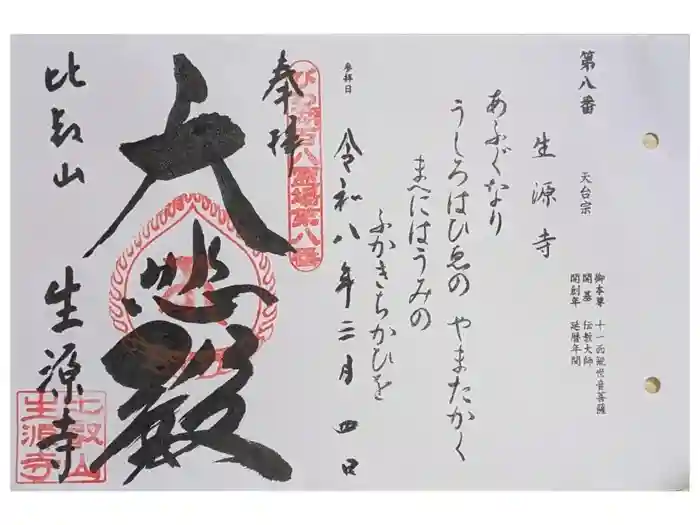 第八番
天台宗
生源寺
御本尊 十一面観世音菩薩
開基 伝教大師
開創年 延暦年間
あふぐなり
うしろはひゑの やまたかく
まへにはうみの
ふかきちかひを
参拝日 令和八年三月四日
奉拝
びわ湖百八霊場第八番
大悲殿
比叡山 生源寺
比叡山
生源寺